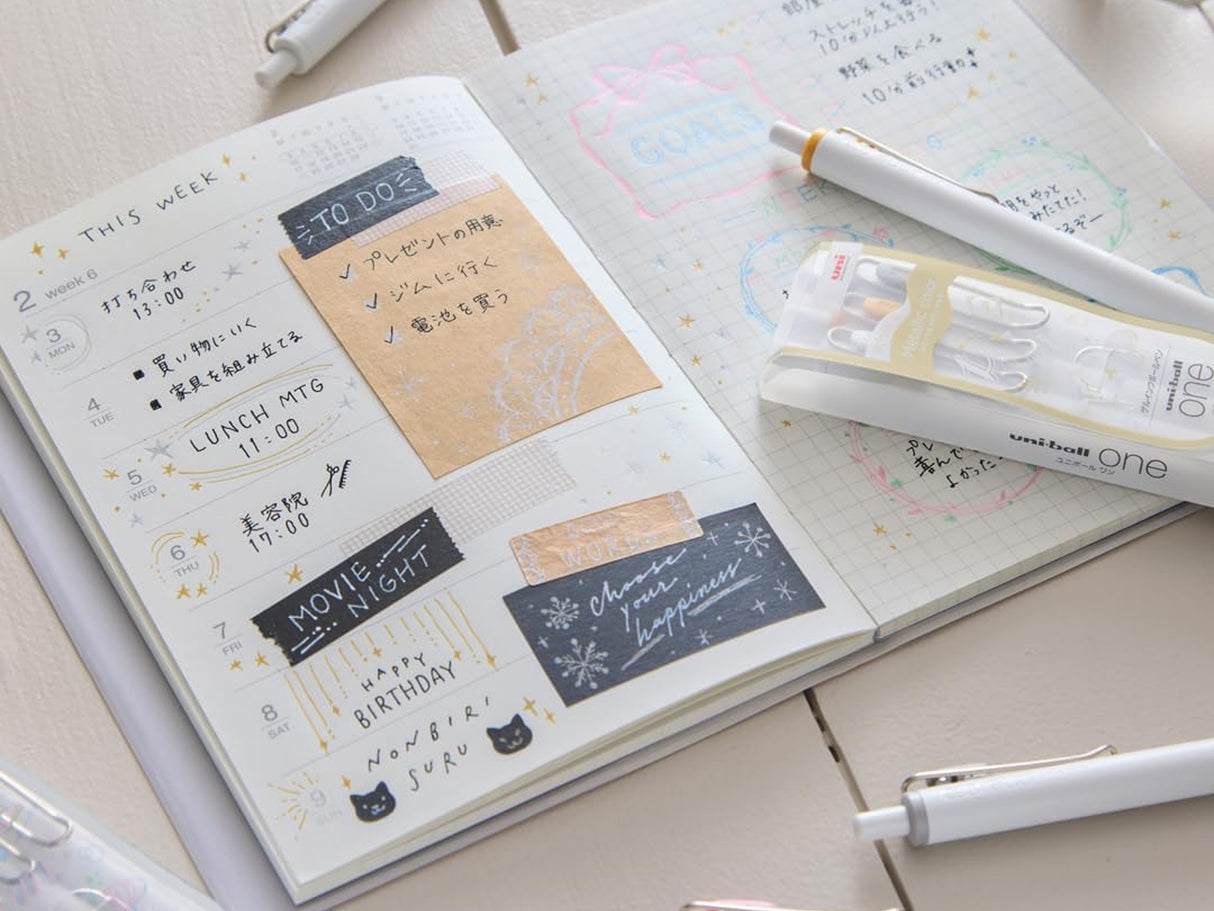 THIS WEEK
2 week 6
3
MON
打ち合わせ
13:00
4
TUE
■ 買い物にいく
■ 家具を組み立てる
5
WED
LUNCH MTG
11:00
6
THU
美容院
17:00
7
FRI
MOVIE
NIGHT
8
SAT
HAPPY
BIRTHDAY
9
SUN
NONBIRI
SURU
TO DO
プレゼントの用意
ジムに行く
電池を買う
WORDS
choose
your
happiness
GOALS
ストレッチを
10分以上行う!
野菜を食べる
10分前行動
uni
Metallic Color
uni-ball one
ゲルインクボールペン
uni-ball one
ユニボール ワン
喜んで
よかった